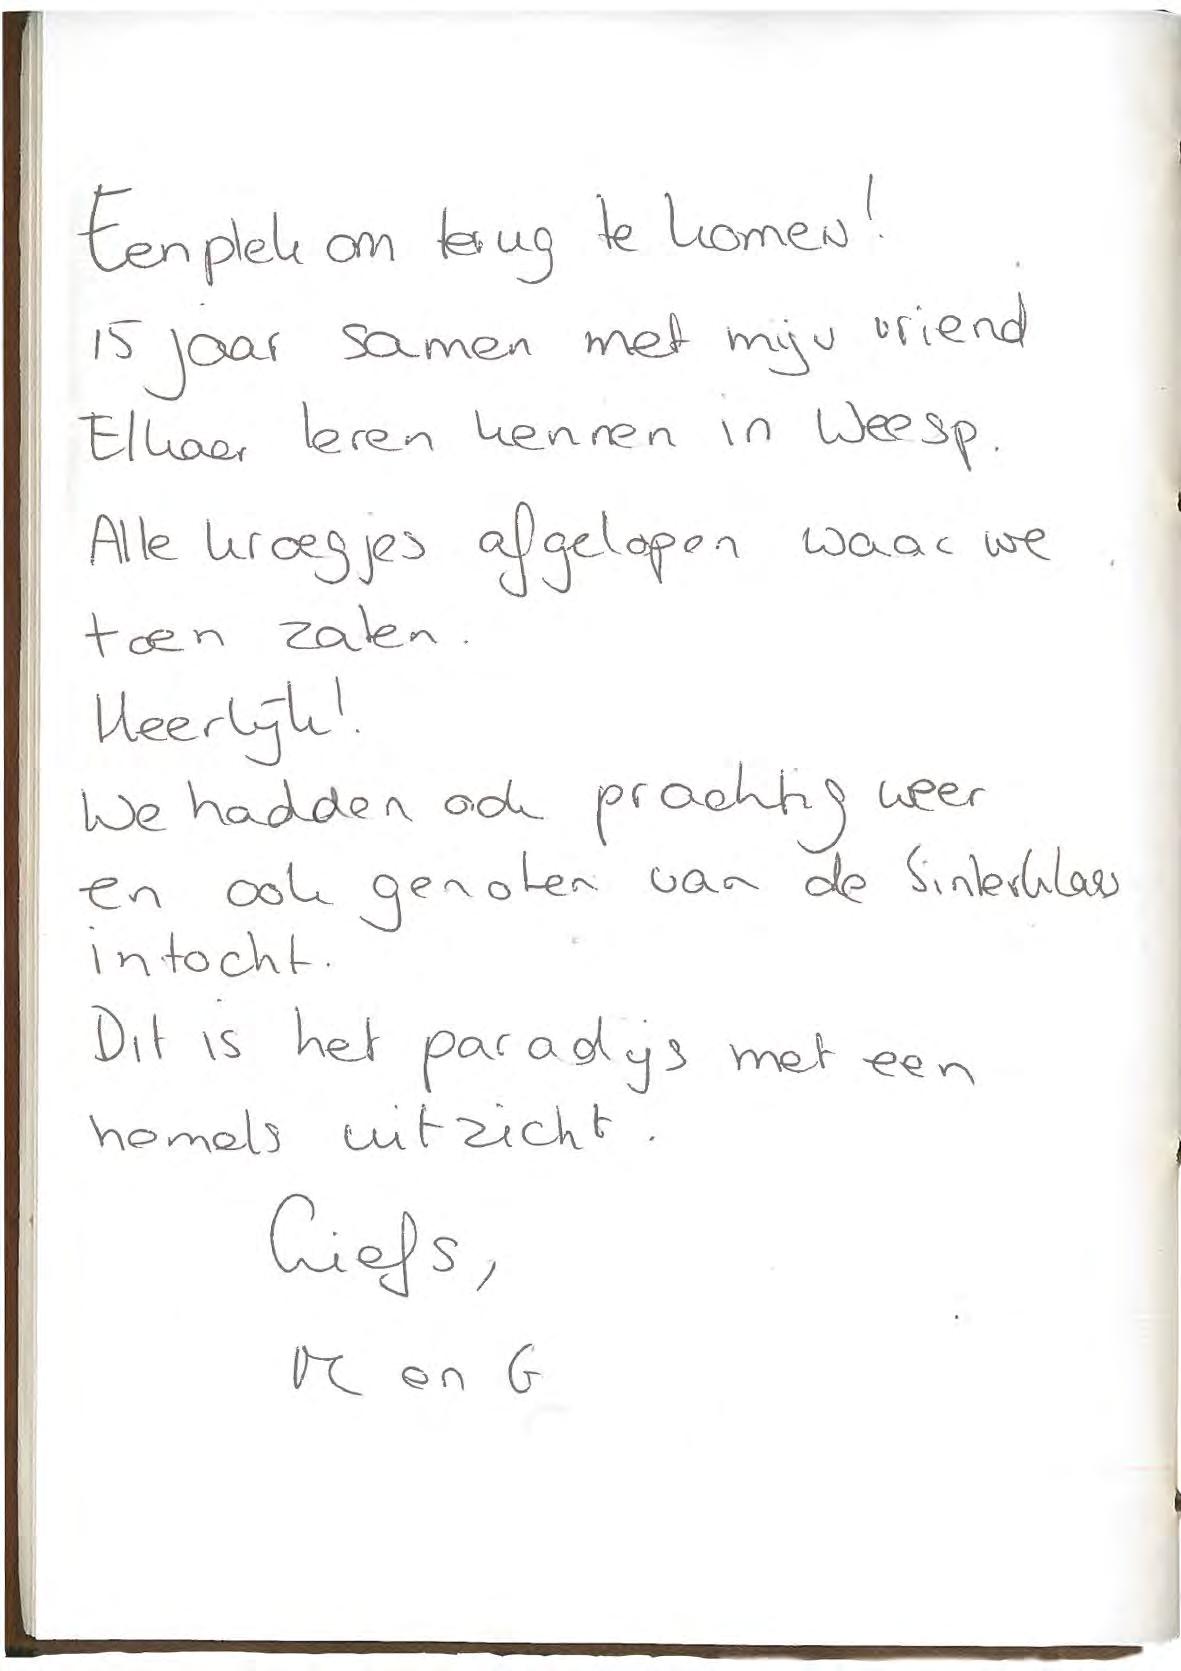 Een plek om terug te komen!
15 jaar samen met mijn vriend
Elkaar leren kennen in Weesp.
Alle kroegjes afgelopen waar we
toen zaten.
Heerlijk!
We hadden ook prachtig weer
en ook genoten van de Sinterklaas
intocht.
Dit is het paradijs met een
hemels uitzicht.
Liefs,
M en G